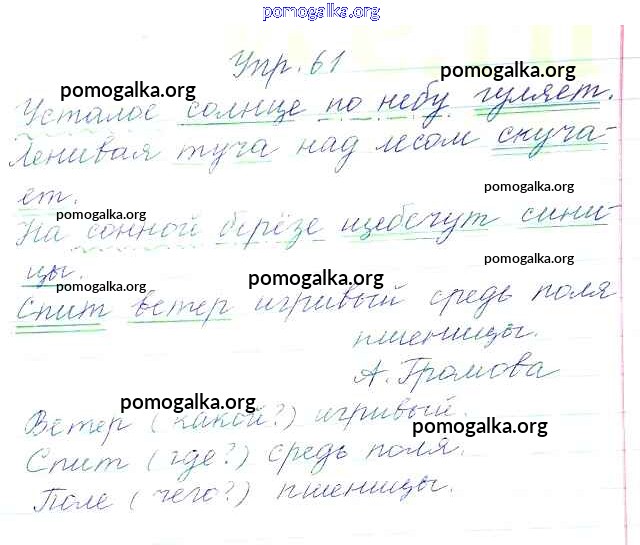 pomogalka.org
Упр. 61
pomogalka.org
pomogalka.org
Усталое солнце по небу гуляет.
Ленивая туча над лесом скуча-
ет.
pomogalka.org
pomogalka.org
На сонной берёзе щебечут сини-
цы.
pomogalka.org
pomogalka.org
Спит ветер игривый средь поля
пшеницы.
А. Громова
pomogalka.org
Ветер (какой?) игривый.
pomogalka.org
Спит (где?) средь поля.
Поле (чего?) пшеницы.